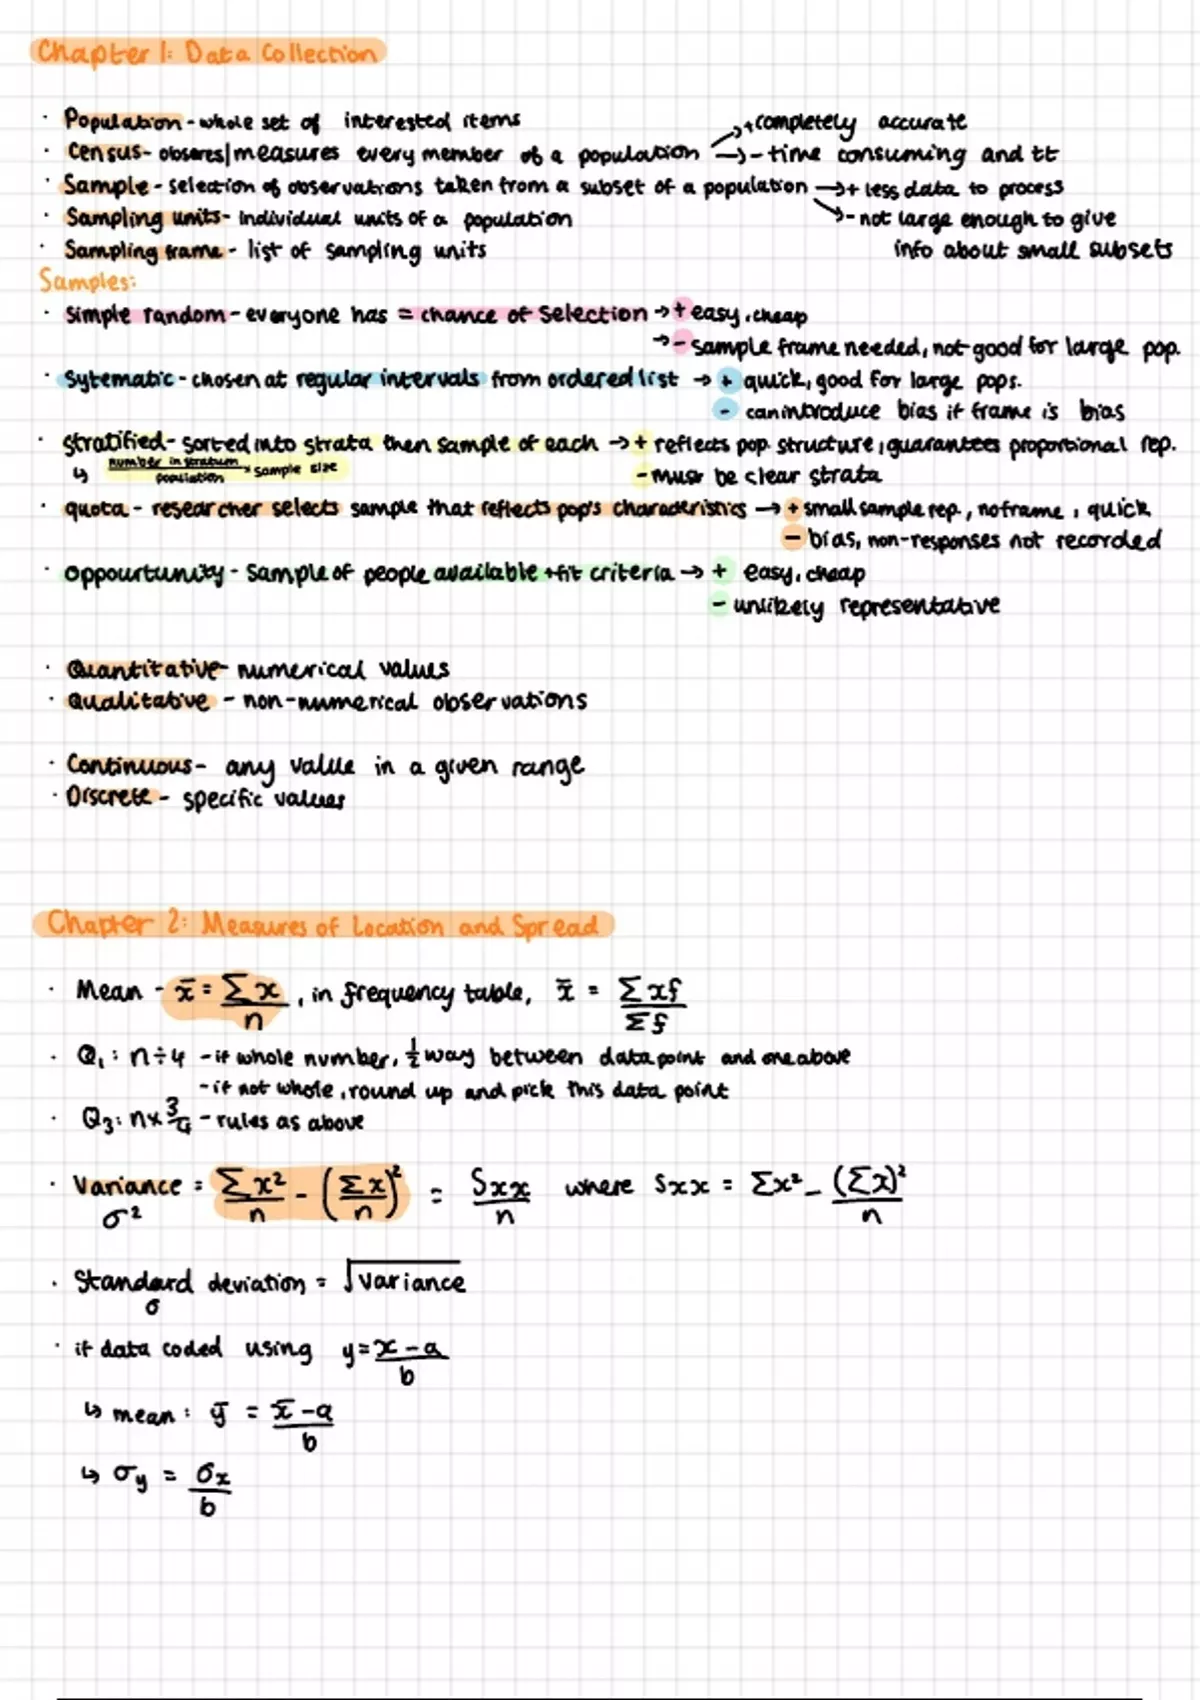 Chapter 1: Data Collection
· Population - whole set of interested items
· Census - obseres/measures every member of a population → + completely accurate
→ - time consuming and tt
· Sample - selection of observations taken from a subset of a population → + less data to process
→ - not large enough to give
info about small subsets
· Sampling units - Individual units of a population
· Sampling frame - list of sampling units
Samples:
· Simple random - everyone has = chance of selection → + easy, cheap
→ - sample frame needed, not good for large pop.
· Sytematic - chosen at regular intervals from ordered list → + quick, good for large pops.
- can introduce bias if frame is bias
· Stratified - sorted into strata then sample of each → + reflects pop. structure, guarantees proportional rep.
↳ number in stratum / population × sample size
- must be clear strata
· quota - researcher selects sample that reflects pop's characteristics → + small sample rep., no frame, quick
- bias, non-responses not recorded
· Oppourtunity - Sample of people available + fit criteria → + easy, cheap
- unlikely representative
· Quantitative - numerical values
· Qualitative - non-numerical observations
· Continuous - any value in a given range
· Discrete - specific values
Chapter 2: Measures of Location and Spread
· Mean - x̄ = Σx / n, in frequency table, x̄ = Σxf / Σf
· Q₁: n÷4 - if whole number, ½ way between data point and one above
- if not whole, round up and pick this data point
· Q₃: n × 3/4 - rules as above
· Variance = Σx²/n - (Σx/n)² = Sxx/n where Sxx = Σx² - (Σx)²/n
σ²
· Standard deviation = √variance
σ
· if data coded using y = x - a / b
↳ mean: ȳ = x̄ - a / b
↳ σy = σx / b